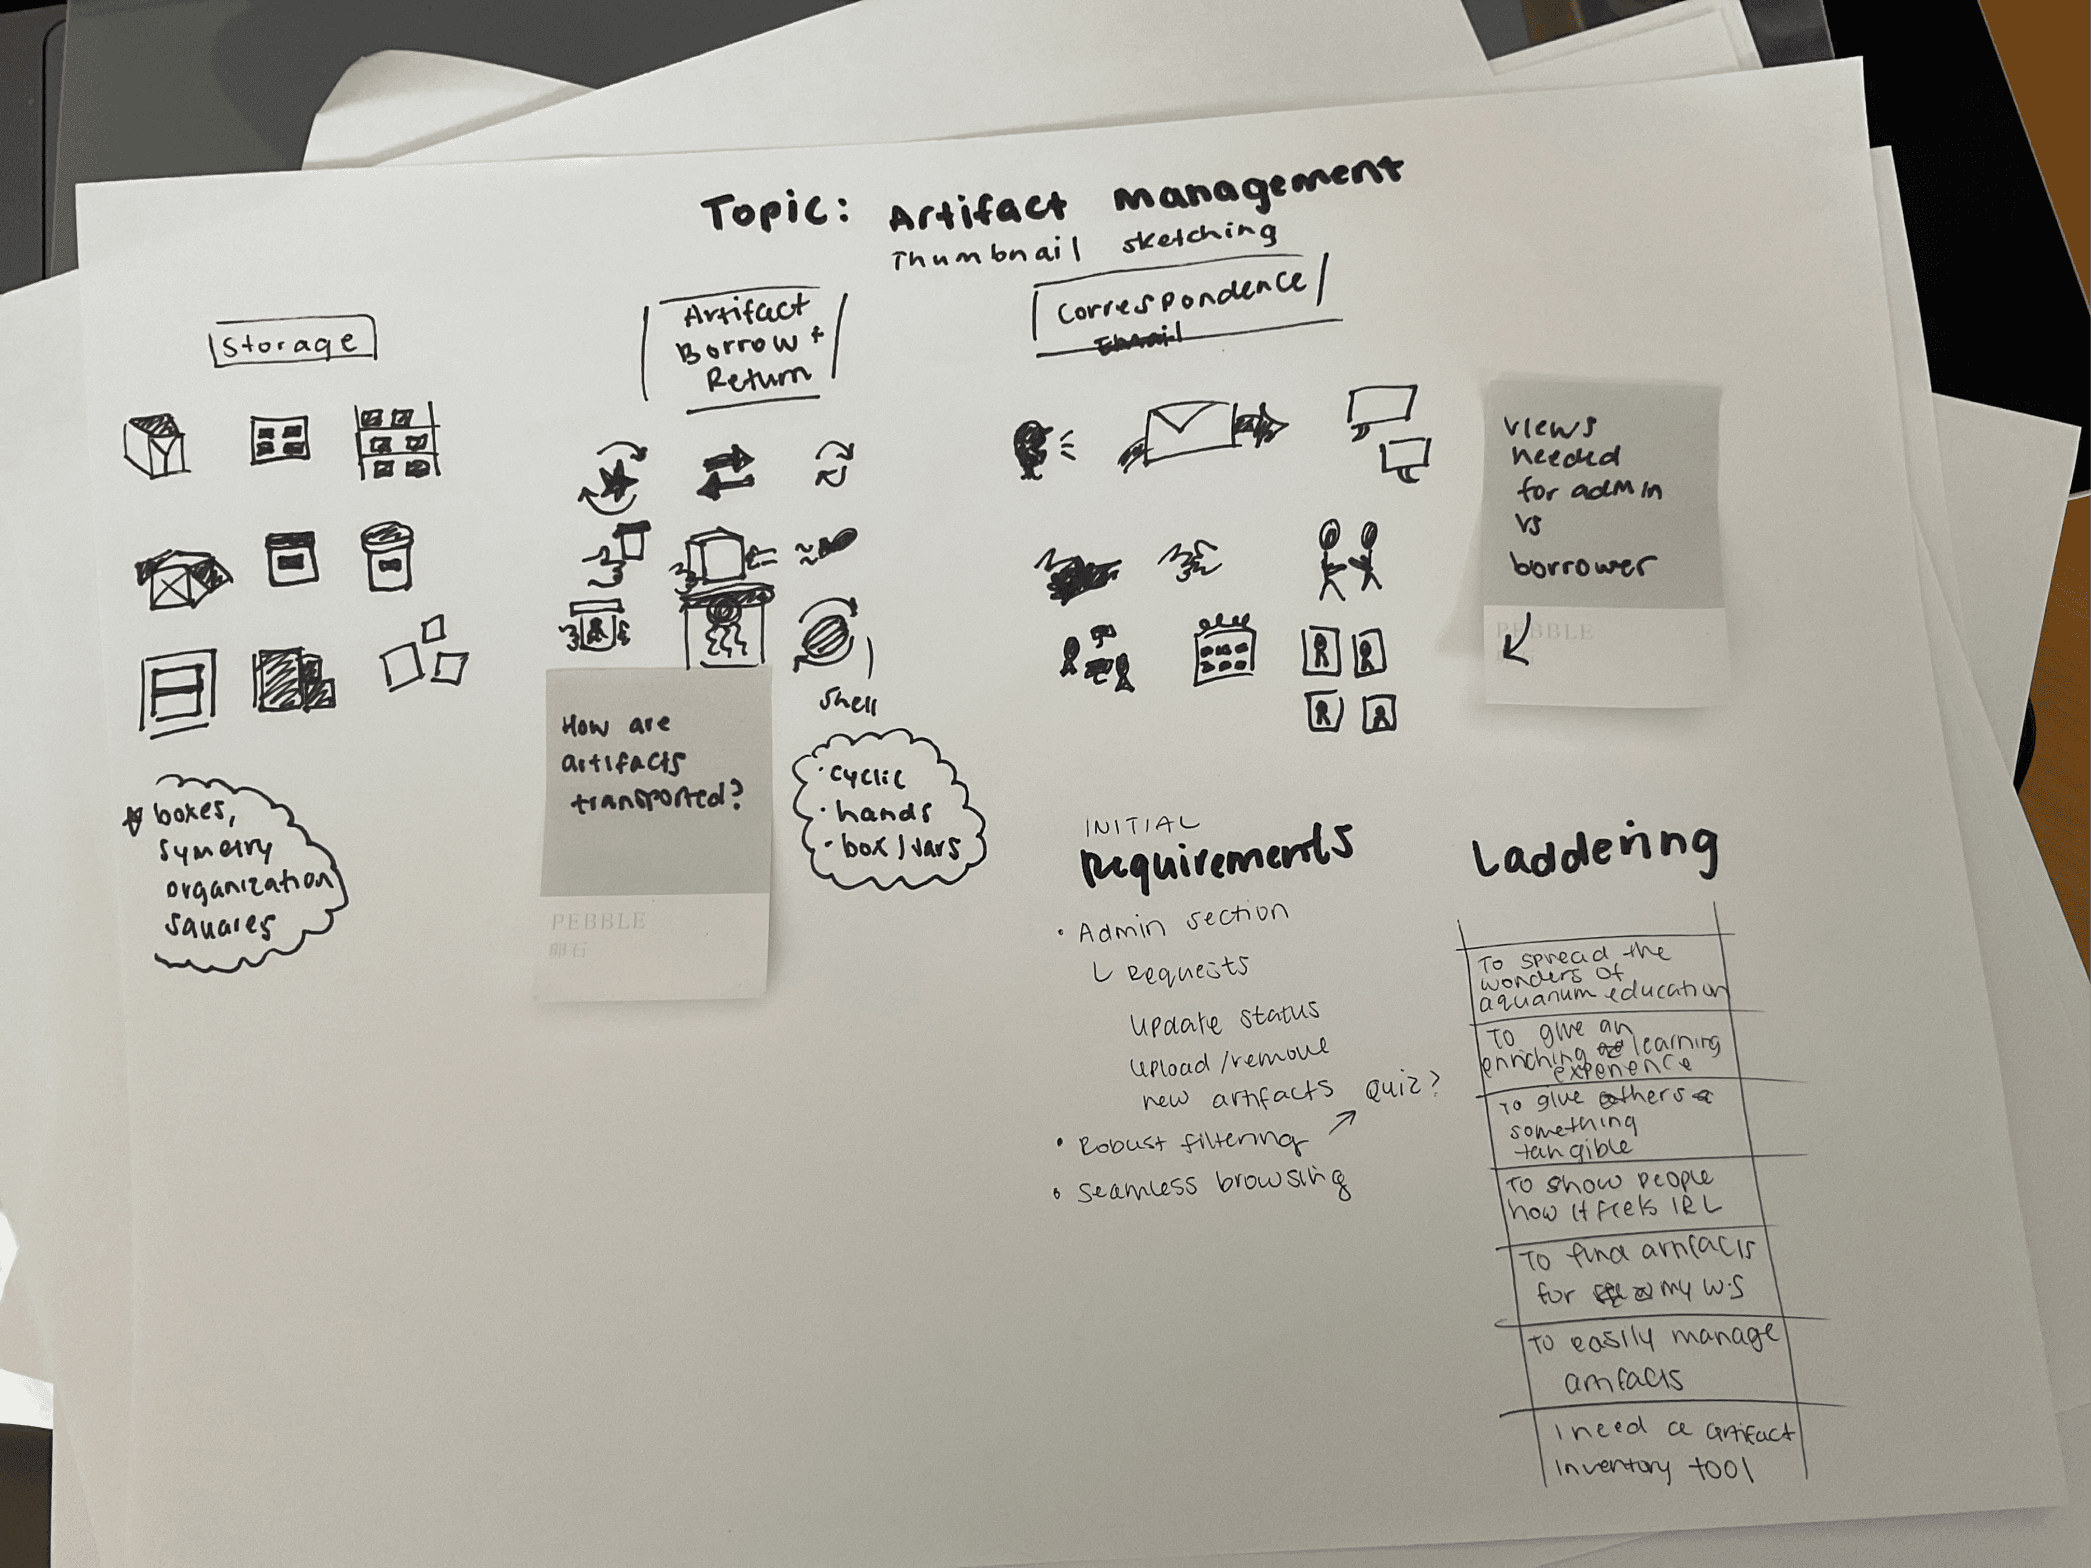 Topic: Artifact Management
Thumbnail sketching
Storage
Artifact
Borrow +
Return
Correspondence
Email
views
needed
for admin
vs
borrower
PEBBLE
shell
How are
artifacts
transported?
PEBBLE
卵石
· cyclic
· hands
· box/jars
boxes,
symetry
organization
squares
INITIAL
Requirements
• Admin section
Requests
Update status
Upload/remove
new artifacts
Quiz?
• Robust filtering
• Seamless browsing
Laddering
To spread the
wonders of
aquarium education
To give an
enriching learning
experience
To give others
something
tangible
To show people
how it feels IRL
To find artifacts
for my W.S
To easily manage
artifacts
I need a artifact
inventory tool